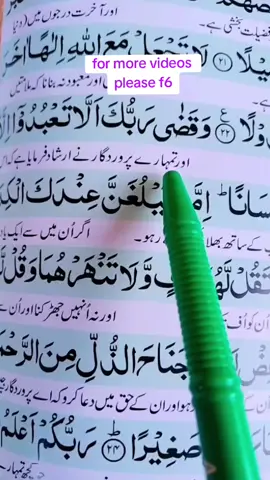 اور آخرت درجوں میں (دنیا
فضیلت بخشی ہے
for more videos
please f6
۲۱ لَا تَجْعَلْ مَعَ اللّٰهِ اِلٰهًا اٰخَرَ
اور معبود نہ بنانا کہ ملامتیں
۲۲ وَقَضٰى رَبُّكَ اَلَّا تَعْبُدُوْۤا اِ
اور تمہارے پروردگار نے ارشاد فرمایا ہے کہ اس
سَانًا ؕ اِمَّا يَبْلُغَنَّ عِنْدَكَ الْكِبَ
کے ساتھ بھلا رہو۔ اگر اُن میں سے ایک یا
تَقُلْ لَّهُ فٍّ وَّلَا تَنْهَرْهُمَا وَقُلْ لَّ
کو اُف اور نہ اُنہیں جھڑکنا اور اُن سے
جَنَاحَ الذُّلِّ مِنَ الرَّحْمَ
رہو اور ان کے حق میں دعا کرو کہ اے پروردگار جیسا
صَغِيْرًا ؕ ۲۴ رَبُّكُمْ اَعْلَمُ